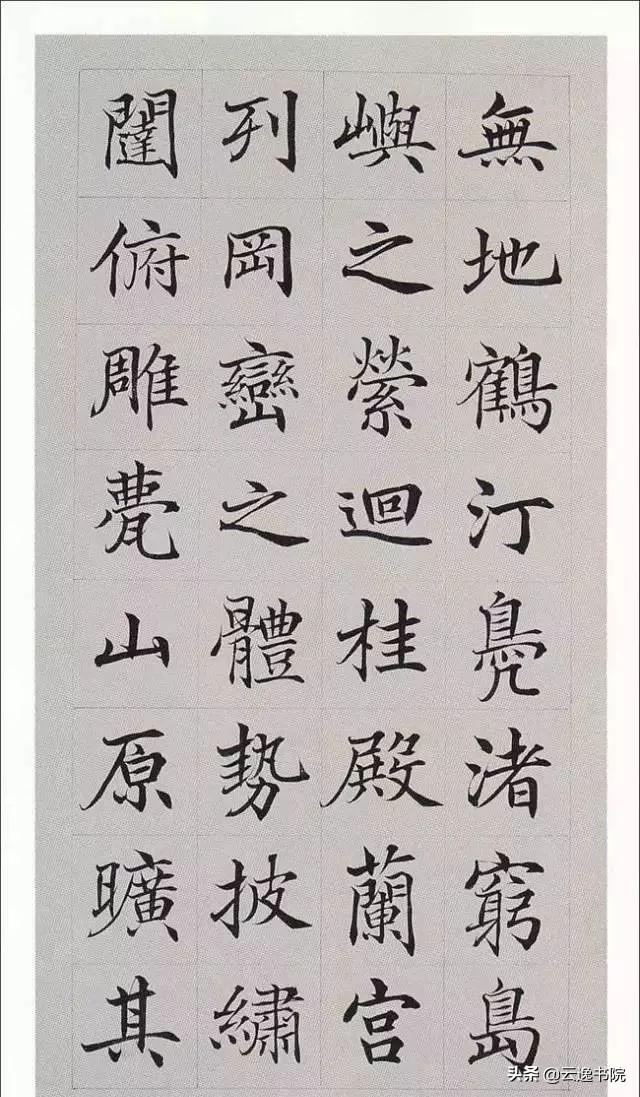 無地鶴汀鳧渚窮島
嶼之縈迴桂殿蘭宮
列岡巒之體勢披繡
闥俯雕甍山原曠其
头条 @云逸书院